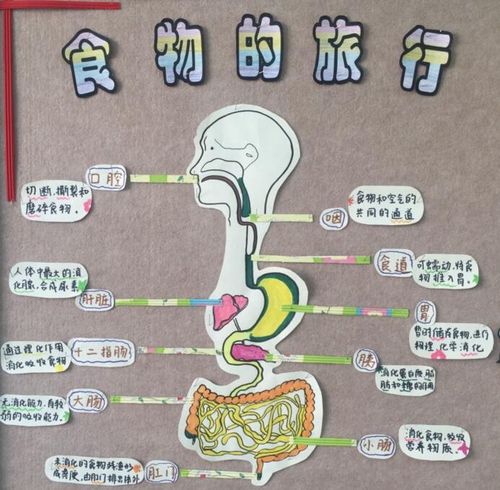 食物的旅行
口腔
切断,撕裂和
磨碎食物。
咽
食物和空气的
共同的通道
食道
可蠕动,将食
物推入胃。
人体中最大的消
化腺,合成尿素
肝脏
胃
暂时储存食物,进行
物理,化学消化
通过理化作用
消化吸收食物
十二指肠
胰
消化蛋白质脂
肪和糖的作用
大肠
无消化能力,有较
弱的吸收能力。
小肠
消化食物,吸收
营养物质。
未消化的食物残渣形
成粪便,由肛门排出体外
肛门